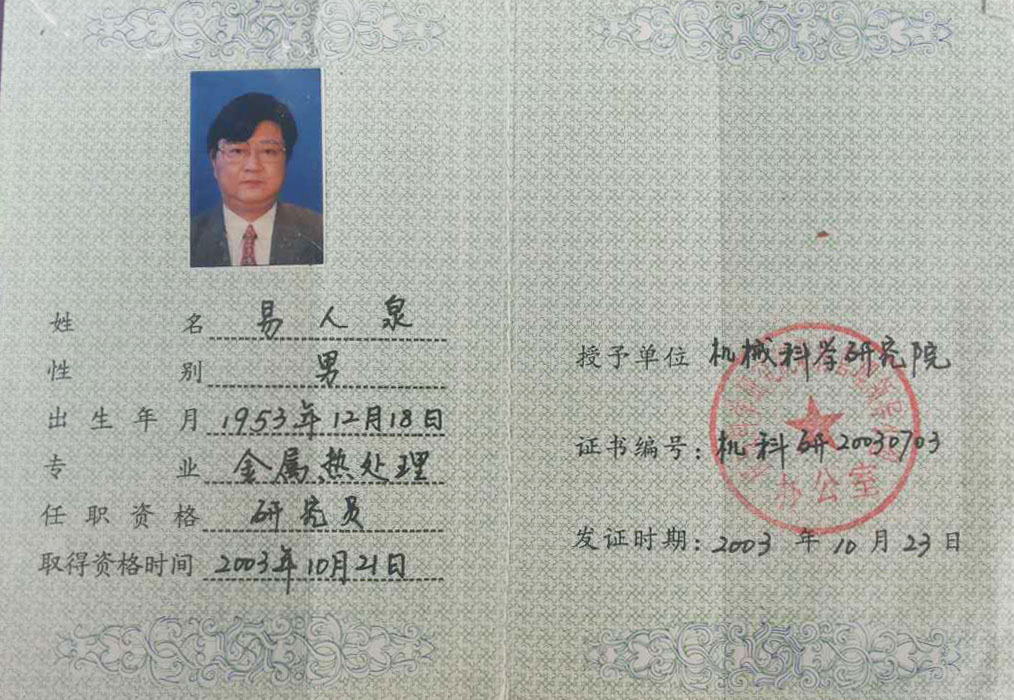 姓名 易人泉
性别 男
出生年月 1953年12月18日
专业 金属热处理
任职资格 研究员
取得资格时间 2003年10月21日
授予单位 机械科学研究院
证书编号：机科研20030703
发证时期：2003年10月23日
办公室